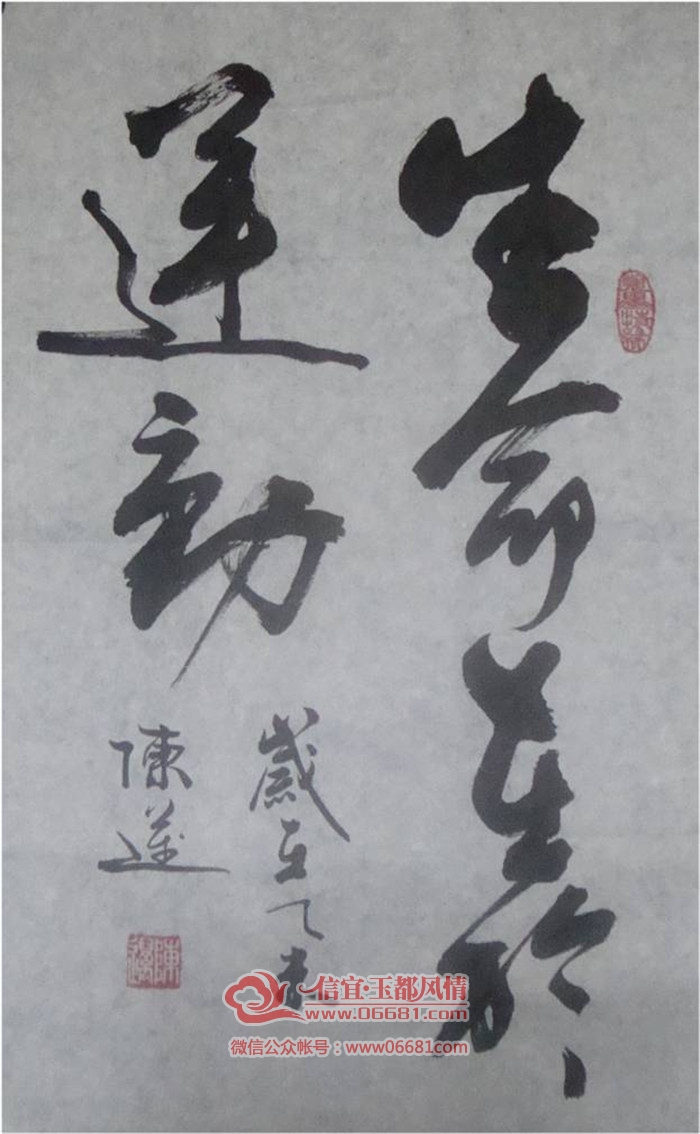 生命在於
運動
歲在乙未
陳
信宜·玉都风情
www.06681.com
微信公众帐号：www06681com